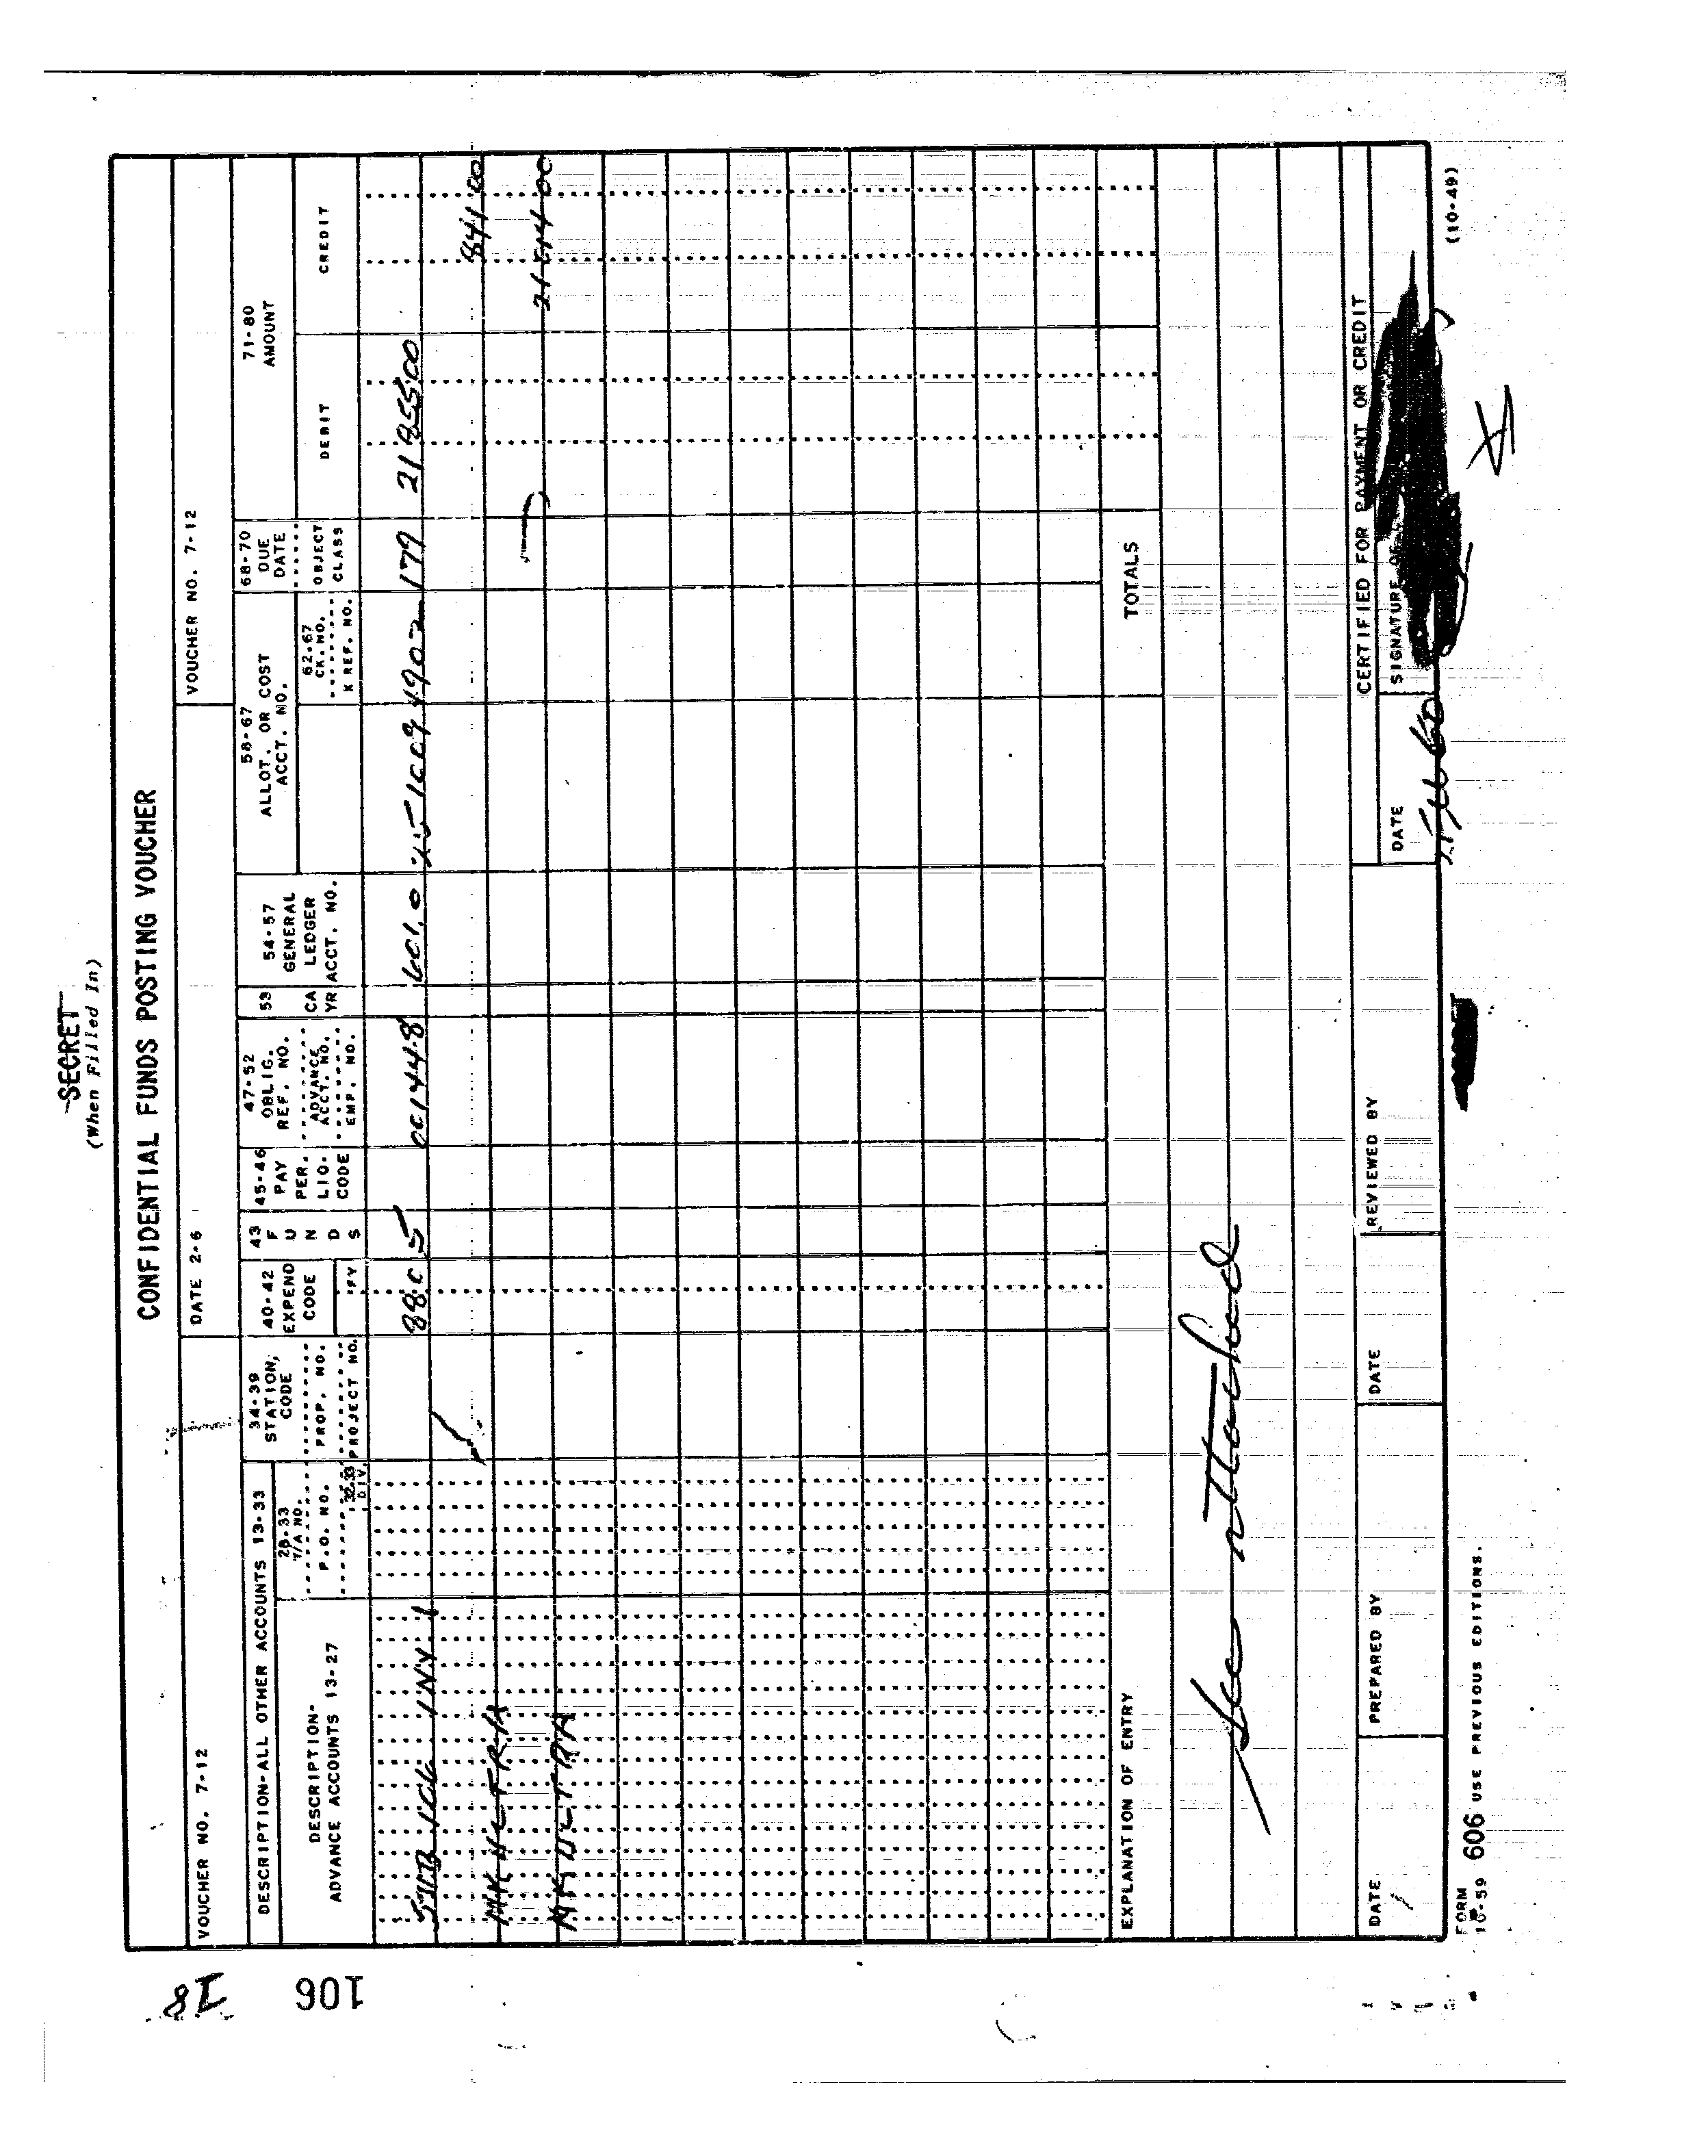 SECRET
(When Filled In)
CONFIDENTIAL FUNDS POSTING VOUCHER
VOUCHER NO. 7-12
DATE 2-6
VOUCHER NO. 7-12
DESCRIPTION-ALL OTHER ACCOUNTS 13-33
DESCRIPTION-
ADVANCE ACCOUNTS 13-27
28-33
T/A NO.
P.O. NO.
32-33
DIV.
34-39
STATION,
CODE
PROP. NO.
PROJECT NO.
40-42
EXPEND
CODE
FY
43
F
U
N
D
S
45-46
PAY
PER.
LIQ.
CODE
47-52
OBLIG.
REF. NO.
ADVANCE
ACCT. NO.
EMP. NO.
53
CA
YR
54-57
GENERAL
LEDGER
ACCT. NO.
58-67
ALLOT. OR COST
ACCT. NO.
62-67
CK. NO.
X REF. NO.
68-70
DUE
DATE
OBJECT
CLASS
71-80
AMOUNT
DEBIT
CREDIT
INV 1 880 5 001448 601.0 4902 177 21855.00
841 00
21 014 00
TOTALS
EXPLANATION OF ENTRY
See attached
DATE
PREPARED BY
DATE
REVIEWED BY
CERTIFIED FOR PAYMENT OR CREDIT
DATE
SIGNATURE OF
FORM
10-59 606 USE PREVIOUS EDITIONS.
(10-49)
106
18